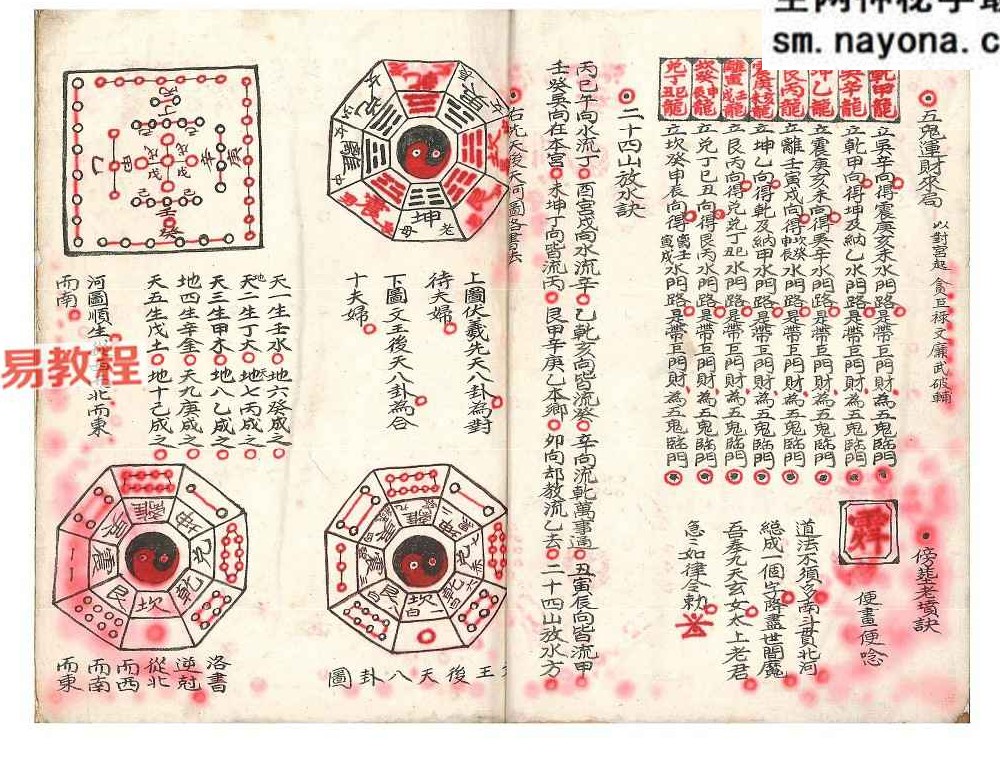 sm.nayona.c
易教程
五鬼運財來局
以對宮起 貪巨祿文廉武破輔
乾甲龍
立巽辛向得震庚亥未水門路是帶巨門財為五鬼臨門
巽辛龍
立乾甲向得坤及納乙水門路是帶巨門財為五鬼臨門
坤乙龍
立震庚亥未向得巽辛水門路是帶巨門財為五鬼臨門
艮丙龍
立離壬寅戌向得坎癸申辰水門路是帶巨門財為五鬼臨門
立坤乙向得乾及納甲水門路是帶巨門財為五鬼臨門
立艮丙向得兌丁巳丑水門路是帶巨門財為五鬼臨門
坎癸申辰龍
立兌丁巳丑向得艮丙水門路是帶巨門財為五鬼臨門
兌丁巳丑龍
立坎癸申辰向得離壬寅戌水門路是帶巨門財為五鬼臨門
傍塋老墳訣
便畫便唸
道法不須多南斗貫北河
總成一個字降盡世間魔
吾奉九天玄女太上老君
急急如律令敕
二十四山放水訣
丙巳午向水流丁 酉宮戌向水流辛 乙乾亥向皆流癸 辛向流乾萬事通 丑寅辰向皆流甲
壬癸巽向在本宮 未坤丁向皆流丙 艮甲辛庚乙本鄉 卯向却教流乙去 二十四山放水方
右先天後天河圖洛書法
上圖伏羲先天八卦為對
待夫婦
下圖文王後天八卦為合
十夫婦
天一生壬水 地六癸成之
地二生丁火 天七丙成之
天三生甲木 地八乙成之
地四生辛金 天九庚成之
天五生戊土 地十己成之
河圖順生
北而東
而南
王後天八卦圖
洛書
逆尅
從北
而西
而南
而東